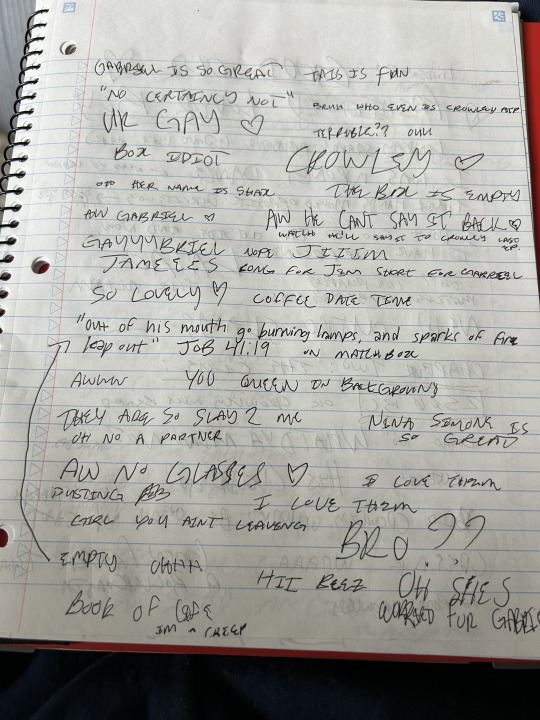 GABRIEL IS SO GREAT THIS IS FUN
"NO CERTAINLY NOT" BRUH WHO EVEN IS CROWLEY
UR GAY ♡ TERRIBLE?? OUH
BOX IDIOT CROWLEY ♡
HER NAME IS SHAX THE BOX IS EMPTY
AW GABRIEL ♡ AW HE CANT SAY IT BACK ♡
WATCH HE'LL SAY IT TO CROWLEY LAST EP.
GAYYYBRIEL NOPE JIIIM
JAMEEES LONG FOR JIM SHORT FOR GABRIEL
SO LOVELY ♡ COFFEE DATE TIME
"out of his mouth go burning lamps, and sparks of fire
leap out" JOB 41:19 ON MATCHBOX
AWWW YOU QUEEN ON BACKGROUND
THEY ARE SO SLAY 2 ME NINA SIMONE IS
OH NO A PARTNER SO GREAT
AW NO GLASSES ♡ I LOVE THEM
DUSTING I LOVE THEM
GIRL YOU AINT LEAVING BRO ??
EMPTY OHHH
HII BEEZ OH SHES
BOOK OF LIFE WORRIED FOR GABRIEL
IM A CREEP